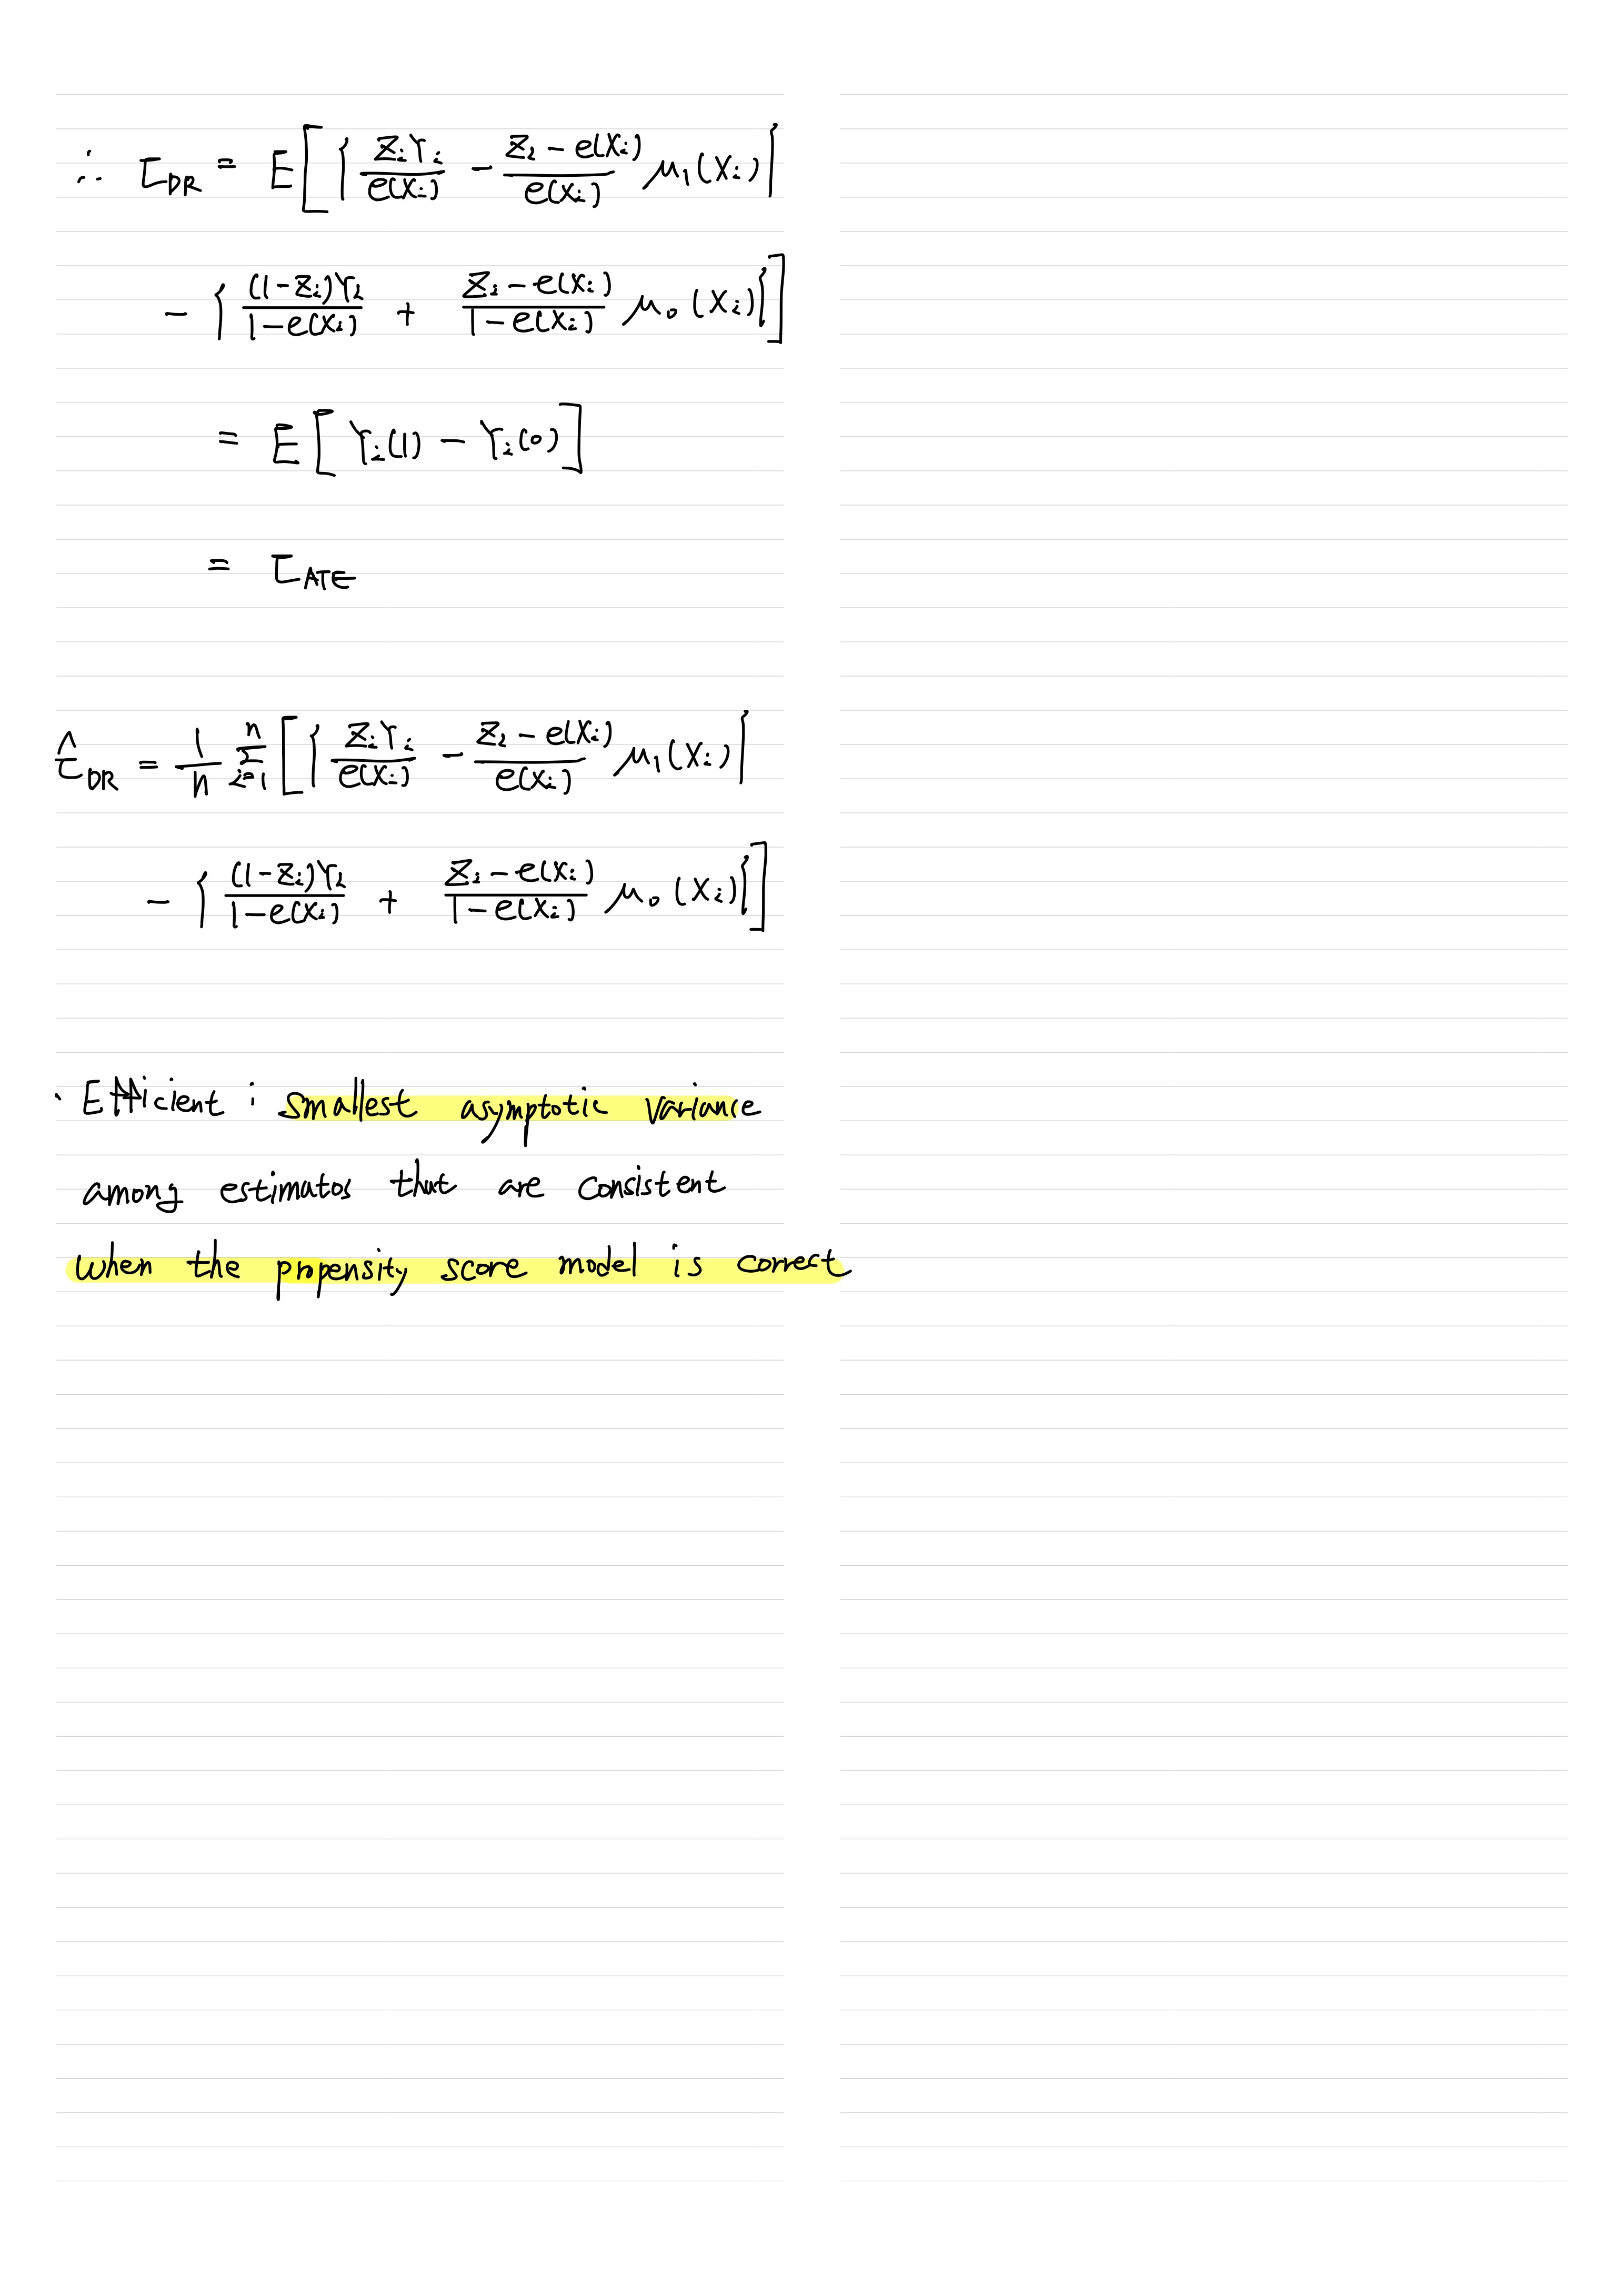 ∴ τ_DR = E[{ Z_i Y_i / e(X_i) − (Z_i − e(X_i)) / e(X_i) μ_1(X_i) }
− { (1−Z_i)Y_i / (1−e(X_i)) + (Z_i − e(X_i)) / (1−e(X_i)) μ_0(X_i) }]
= E[ Y_i(1) − Y_i(0) ]
= τ_ATE
τ̂_DR = 1/n Σ_{i=1}^{n} [{ Z_i Y_i / e(X_i) − (Z_i − e(X_i)) / e(X_i) μ_1(X_i) }
− { (1−Z_i)Y_i / (1−e(X_i)) + (Z_i − e(X_i)) / (1−e(X_i)) μ_0(X_i) }]
· Efficient : smallest asymptotic variance
among estimatos that are consistent
when the propensity score model is correct